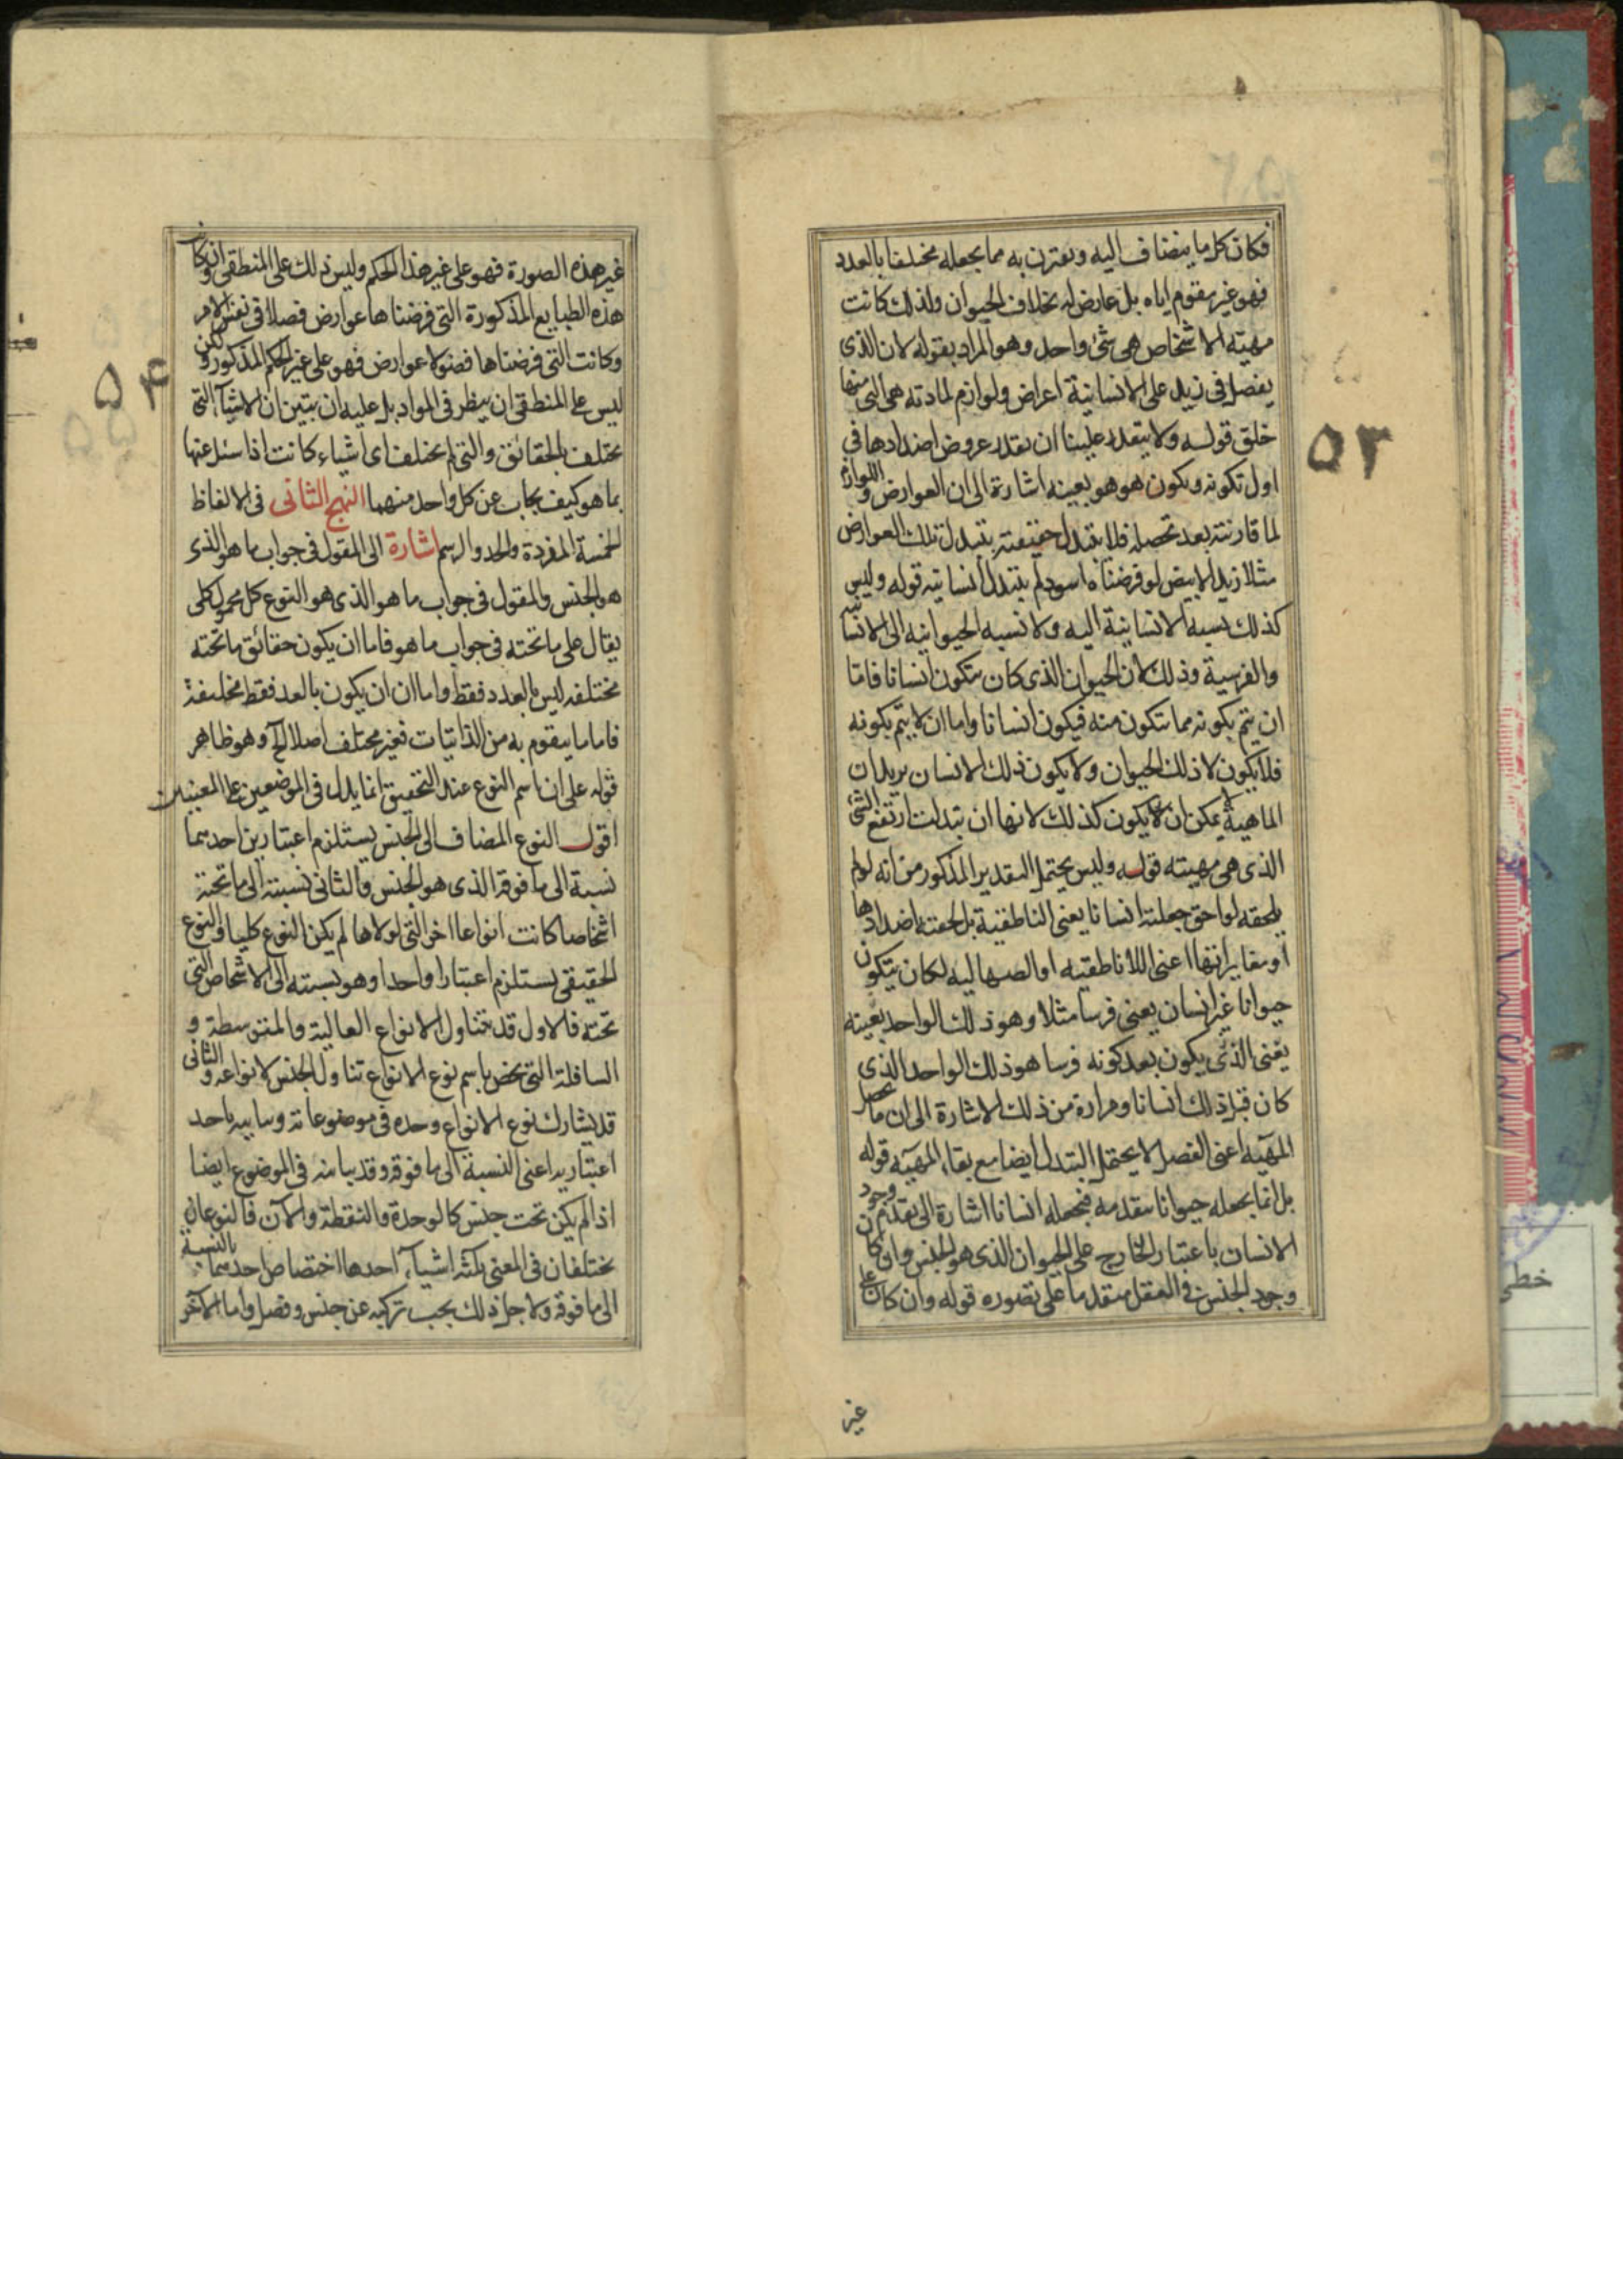 فكان كل ما ينضاف اليه ويقترن به مما يجعله مختلفا بالعدد
فهو غير مقوم اياه بل عارض له بخلاف الحيوان ولذلك كانت
مهيته الاشخاص هى شئ واحد وهو المراد بقوله لان الذى
يفصل فى زيد على الانسانية اعراض ولوازم لمادته هى التى منها
خلق قوله ولا يتعذر علينا ان نقدر عروض اضدادها فى
اول تكونه ويكون هو هو بعينه اشارة الى ان العوارض واللوازم
لما قارنته بعد تحصله فلا يتبدل حقيقته بتبدل تلك العوارض
مثلا زيد الابيض لو فرضناه اسود لم يتبدل انسانيته قوله وليس
كذلك نسبة الانسانية اليه ولا نسبة الحيوانية الى الانسانية
والفرسية وذلك لان الحيوان الذى كان يتكون انسانا فاما
ان يتم تكونه مما يتكون منه فيكون انسانا واما ان لا يتم تكونه
فلا يكون لا ذلك الحيوان ولا يكون ذلك الانسان يريد ان
الماهية لا يمكن ان يكون كذلك لانها ان تبدلت ارتفع الشئ
الذى هى مهيته قوله وليس يحتمل التقدير المذكور من انه لو لم
يلحقه لواحق جعلته انسانا يعنى الناطقية بل لحقته اضدادها
او مغايراتها اعنى اللاناطقيه او الصهاليه لكان يتكون
حيوانا غير انسان يعنى فرسا مثلا وهو ذلك الواحد بعينه
يعنى الذى يكون بعد كونه فرسا هو ذلك الواحد الذى
كان قبل ذلك انسانا ومراده من ذلك الاشارة الى ان ما يحصل
المهية اعنى الفصل لا يحتمل التبدل ايضا مع بقاء المهية قوله
بل انما يجعله حيوانا متقدمه فيجعله انسانا اشارة الى تقدم وجود
الانسان باعتبار الخارج على الحيوان الذى هو الجنس وان كان
وجود الجنس فى العقل متقدما على تصوره قوله وان كان على
غير
٥٣
غير هذه الصورة فهو على غير هذا الحكم وليس ذلك على المنطقى اى وان كان
هذه الطبايع المذكورة التى فرضناها عوارض فصلا فى نفس الامر
وكانت التى فرضناها فصولا عوارض فهو على غير الحكم المذكور ولكن
ليس على المنطقى ان ينظر فى المواد بل عليه ان يتبين ان الاشياء التى
يختلف بالحقائق والتى لم يختلف اى اشياء كانت اذا سئل عنها
بما هو كيف يجاب عن كل واحد منهما النهج الثانى فى الالفاظ
الخمسة المفردة والحد والرسم اشارة الى المقول فى جواب ما هو الذى
هو الجنس والمقول فى جواب ما هو الذى هو النوع كل محمول كلى
يقال على ما تحته فى جواب ما هو فاما ان يكون حقائق ما تحته
مختلفه ليس بالعدد فقط واما ان ان يكون بالعدد فقط مختلفة
فاما ما يتقوم به من الذاتيات فغير مختلف اصلا الخ وهو ظاهر
قوله على ان اسم النوع عند التحقيق انما يدل فى الموضعين على المعنيين
اقول النوع المضاف الى الجنس يستلزم اعتبارين احديهما
نسبة الى ما فوقه الذى هو الجنس والثانى نسبته الى ما تحته
اشخاصا كانت انواعا اخر التى لولاها لم يكن النوع كليا والنوع
الحقيقى يستلزم اعتبارا واحدا وهو نسبته الى الاشخاص التى
تحته فالاول قد يتناول الانواع العالية والمتوسطة و
السافلة التى يخص باسم نوع الانواع تناول الجنس لانواعه والثانى
قد يشارك نوع الانواع وحده فى موضوعاته وباحد
اعتباريه اعنى النسبة الى ما فوقه وقد يباينه فى الموضوع ايضا
اذا لم يكن تحت جنس كالوحدة والنقطة والآن فالنوعان
يختلفان فى المعنى بثلثة اشياء احدها اختصاص احديهما بالنسبة
الى ما فوقه ولاجل ذلك يجب تركبه عن جنس وفصل واما الآخر
۵۴
خطى